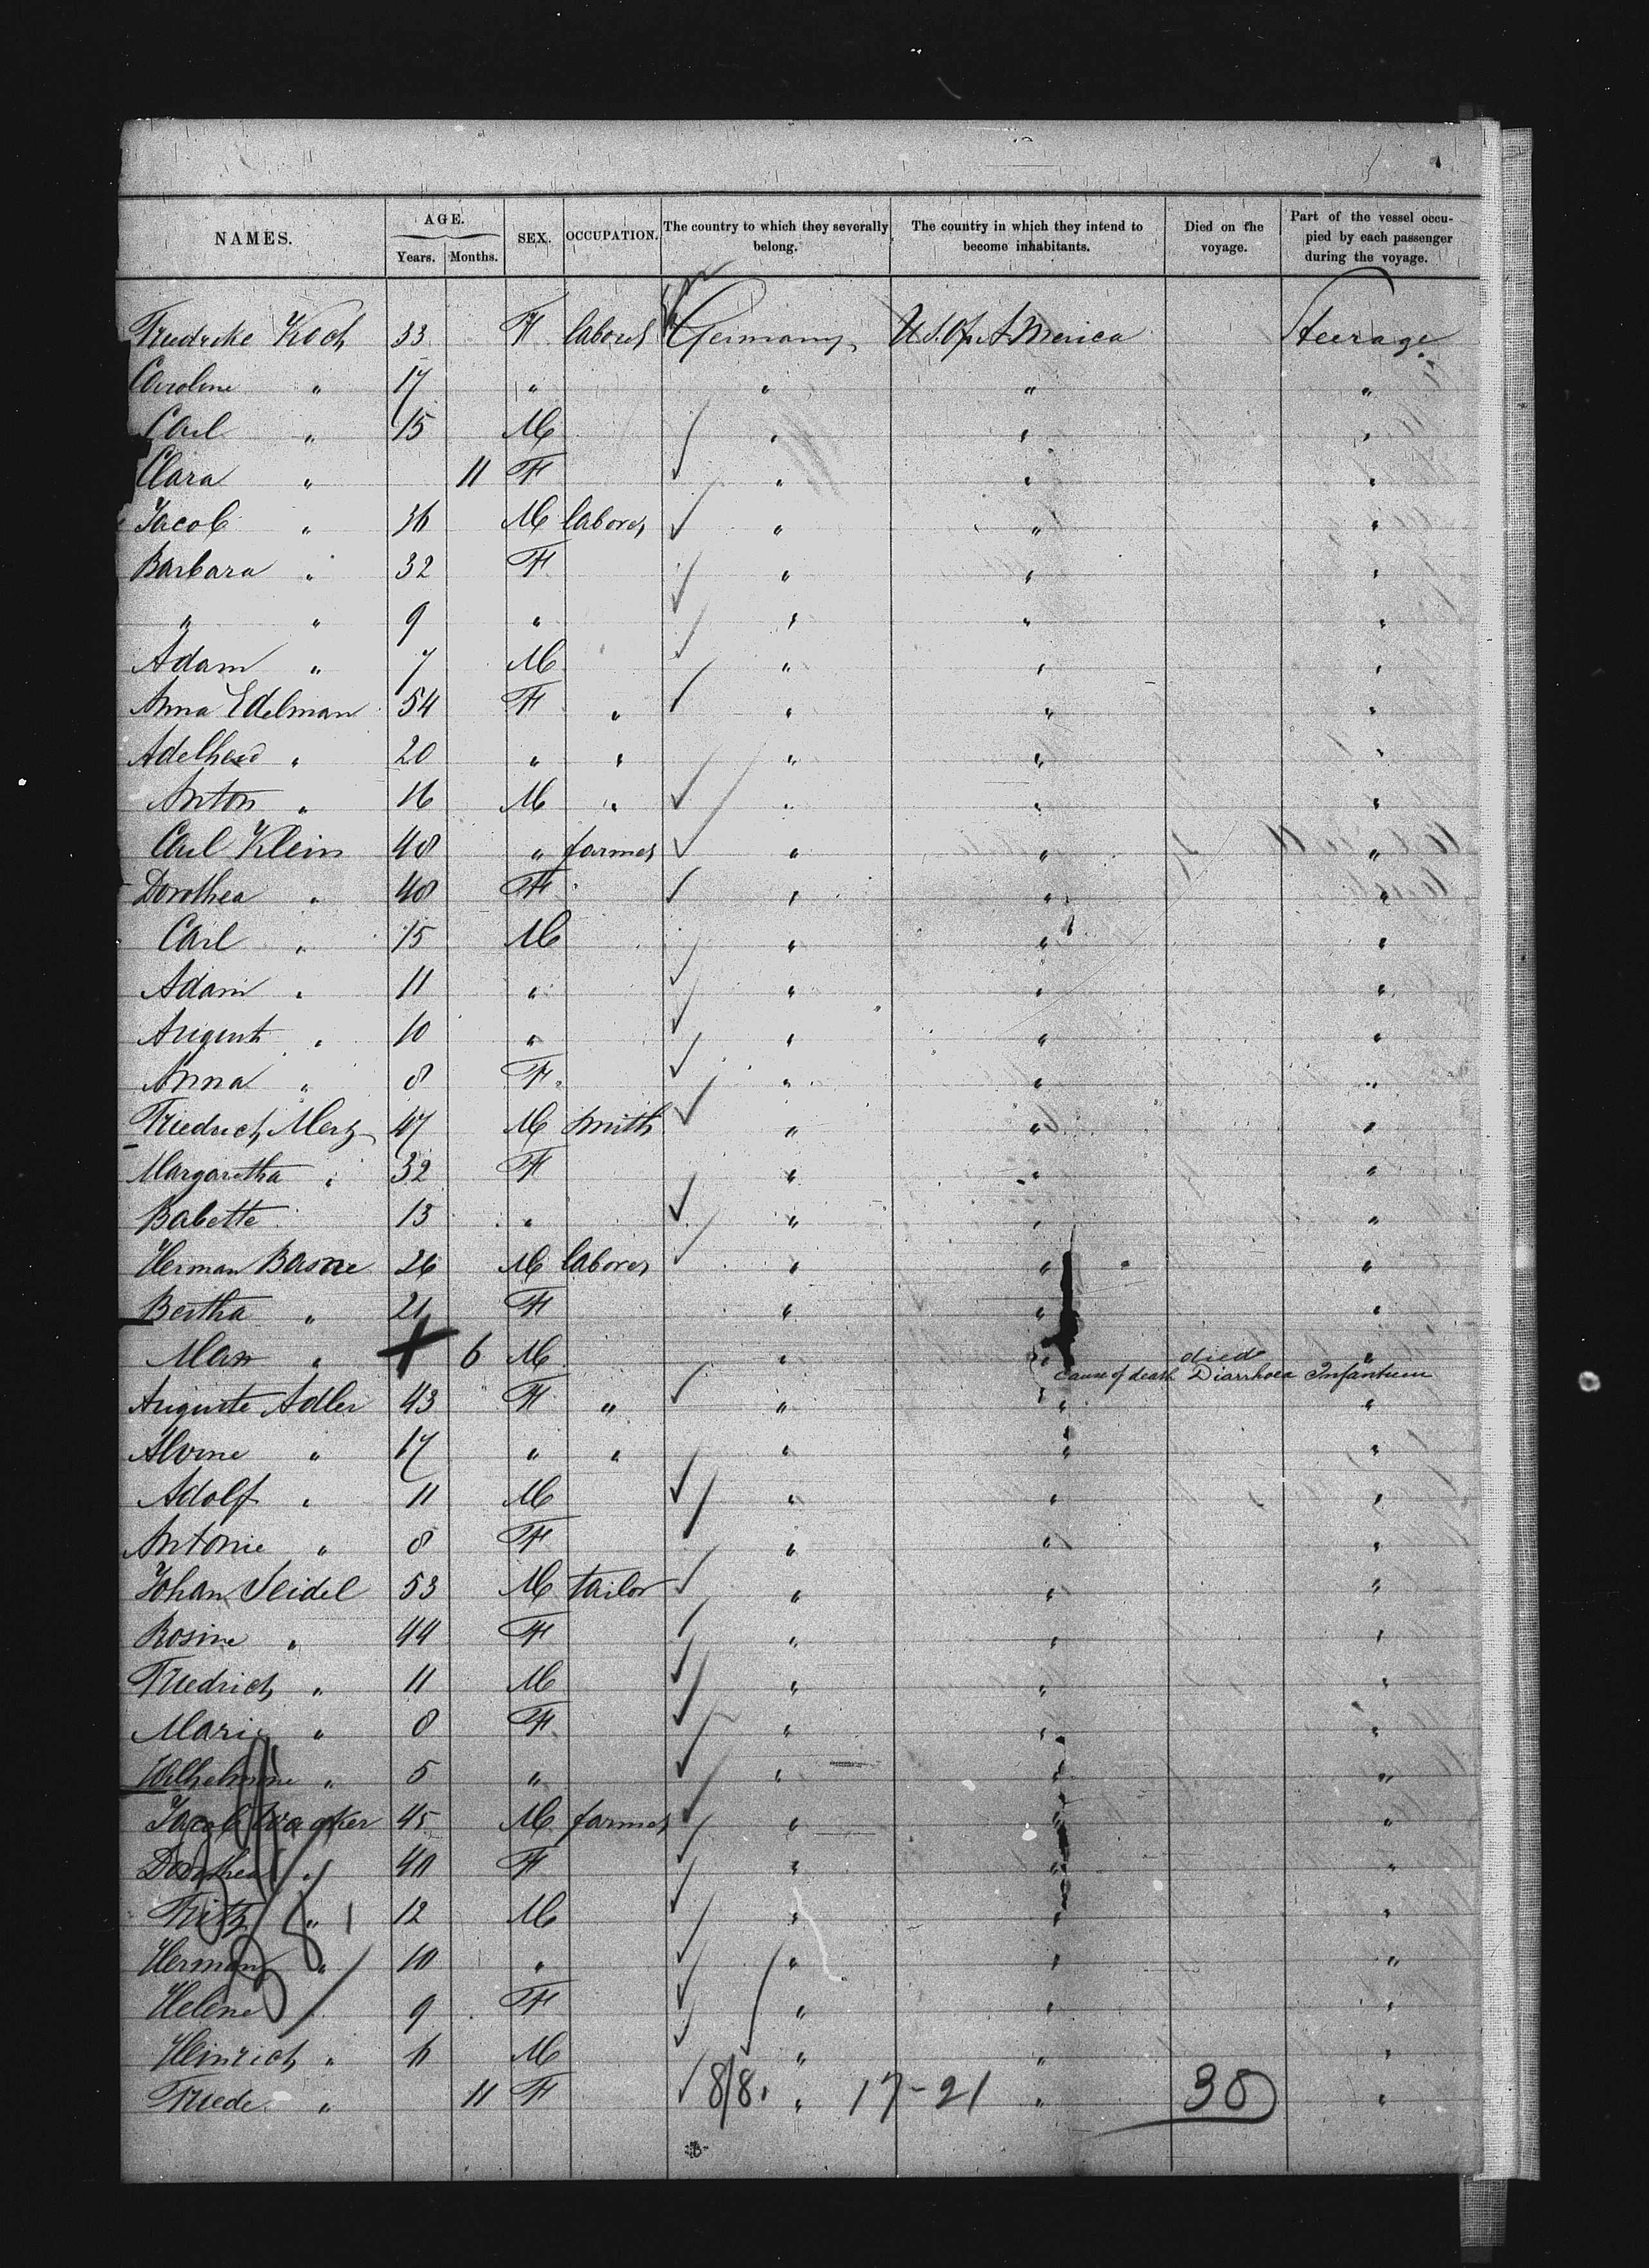 NAMES. AGE. Years. Months. SEX. OCCUPATION. The country to which they severally belong. The country in which they intend to become inhabitants. Died on the voyage. Part of the vessel occupied by each passenger during the voyage.
Friedrike Koch 33 F laborer Germany U.S. of America Steerage
Caroline " 17 " " " "
Carl " 15 M " " "
Clara " 11 F " " "
Jacob " 36 M laborer " " "
Barbara " 32 F " " "
" " 9 " " " "
Adam " 7 M " " "
Anna Edelman 54 F " " " "
Adelheid " 20 " " " " "
Anton " 16 M " " " "
Carl Klein 48 " farmer " " "
Dorothea " 48 F " " "
Carl " 15 M " " "
Adam " 11 " " " "
August " 10 " " " "
Anna " 8 F " " "
Friedrich Merz 47 M smith " " "
Margaretha " 32 F " " "
Babette 13 " " " "
Herman Basne 26 M laborer " " "
Bertha " 21 F " " "
Max " 6 M " " died "
cause of death Diarrhoea Infantum
Auguste Adler 43 F " " " "
Alvine " 17 " " " " "
Adolf " 11 M " " "
Antonie " 8 F " " "
Johan Seidel 53 M tailor " " "
Rosine " 44 F " " "
Friedrich " 11 M " " "
Marie " 8 F " " "
Wilhelmine " 5 " " " "
Jacob Wacker 45 M farmer " " "
Dorothea " 40 F " " "
Fritz " 12 M " " "
Herman " 10 " " " "
Helene " 9 F " " "
Heinrich " 6 M " " "
Friede " 11 F 8/8. " 17-21 " 38 "